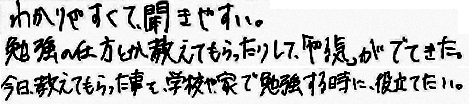 わかりやすくて、聞きやすい。
勉強の仕方とか教えてもらったりして、やる気がでてきた。
今日、教えてもらった事を、学校や家で勉強する時に、役立てたい。